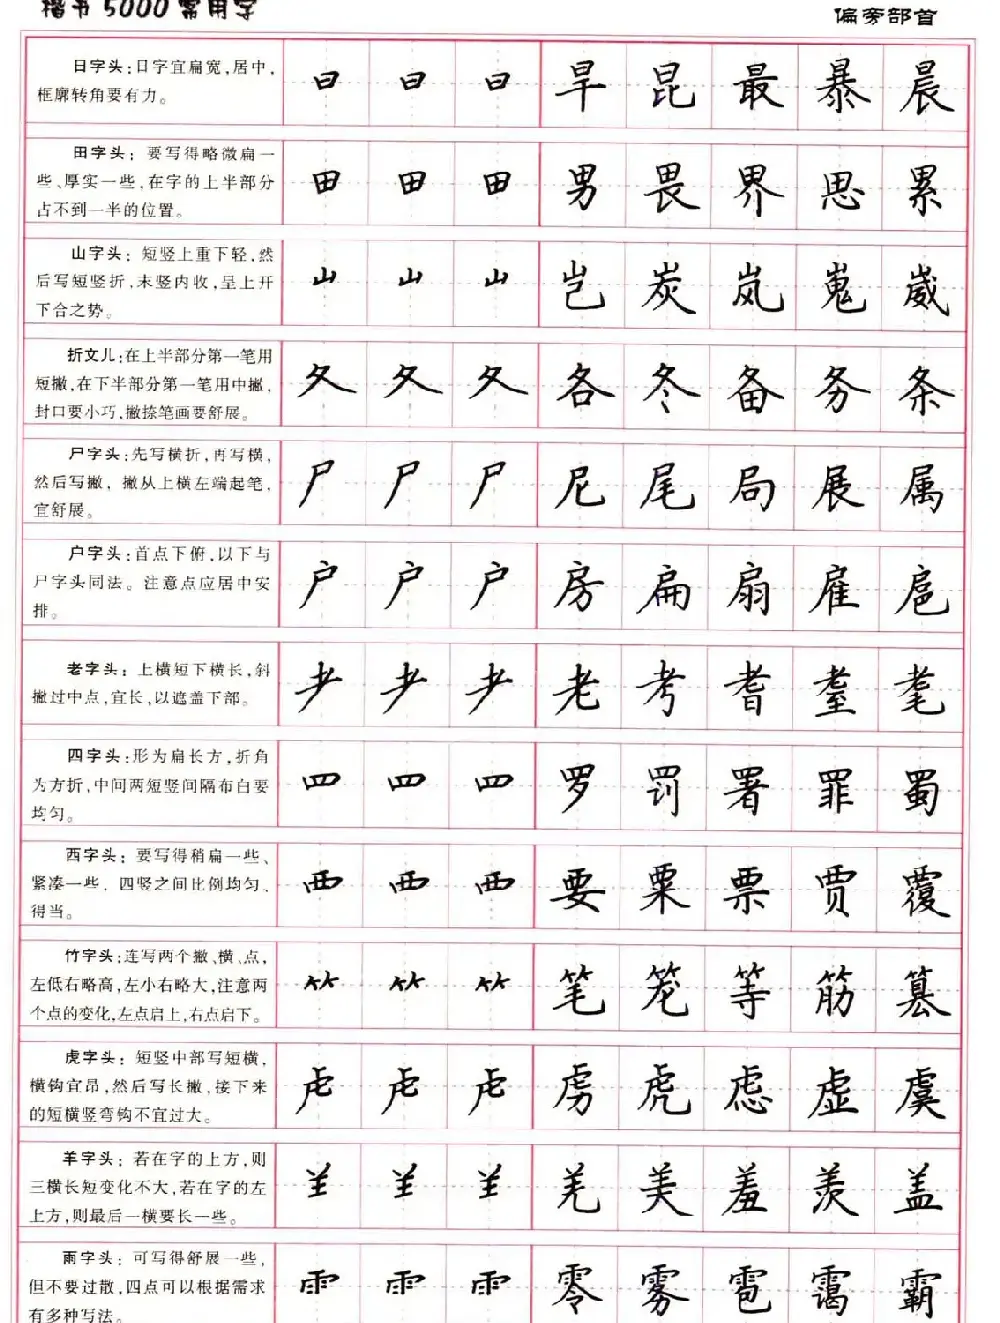 楷书5000常用字
偏旁部首
日字头：日字宜扁宽，居中，
框廓转角要有力。
日 日 日 旱 昆 最 暴 晨
田字头：要写得略微扁一
些、厚实一些，在字的上半部分
占不到一半的位置。
田 田 田 男 畏 界 思 累
山字头：短竖上重下轻，然
后写短竖折，末竖内收，呈上开
下合之势。
山 山 山 岂 炭 岚 嵬 崴
折文儿：在上半部分第一笔用
短撇，在下半部分第一笔用中撇，
封口要小巧，撇捺笔画要舒展。
夂 夂 夂 各 冬 备 务 条
尸字头：先写横折，再写横，
然后写撇，撇从上横左端起笔，
宜舒展。
尸 尸 尸 尼 尾 局 展 属
户字头：首点下俯，以下与
尸字头同法。注意点应居中安
排。
户 户 户 房 扁 扇 雇 扈
老字头：上横短下横长，斜
撇过中点，宜长，以遮盖下部。
耂 耂 耂 老 考 耆 耋 耄
四字头：形为扁长方，折角
为方折，中间两短竖间隔布白要
均匀。
罒 罒 罒 罗 罚 署 罪 蜀
西字头：要写得稍扁一些、
紧凑一些，四竖之间比例均匀、
得当。
覀 覀 覀 要 粟 票 贾 覆
竹字头：连写两个撇、横、点，
左低右略高，左小右略大，注意两
个点的变化，左点启上，右点启下。
⺮ ⺮ ⺮ 笔 笼 等 筋 篡
虎字头：短竖中部写短横，
横钩宜昂，然后写长撇，接下来
的短横竖弯钩不宜过大。
虍 虍 虍 虏 虎 虑 虚 虞
羊字头：若在字的上方，则
三横长短变化不大，若在字的左
上方，则最后一横要长一些。
𦍌 𦍌 𦍌 羌 美 羞 羡 盖
雨字头：可写得舒展一些，
但不要过散，四点可以根据需求
有多种写法。
⻗ ⻗ ⻗ 零 雾 雹 霭 霸